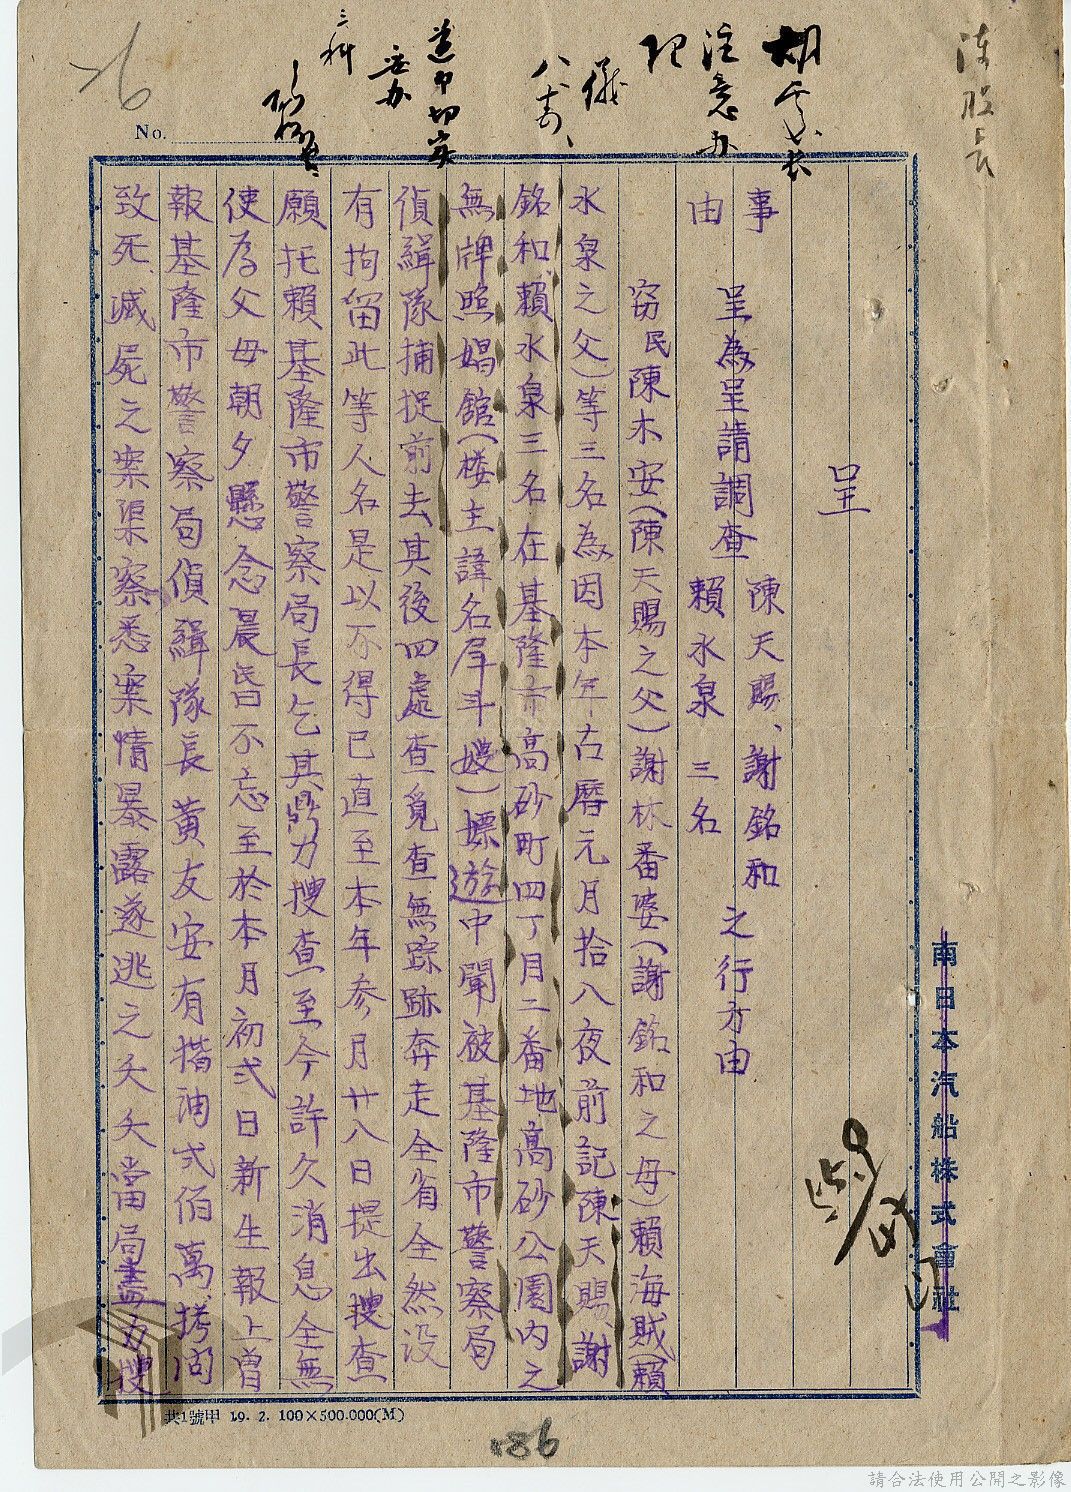 呈
事由
呈為呈請調查陳天賜、謝銘和賴水泉三名之行方由
窃民陳木安(陳天賜之父)謝林番婆(謝銘和之母)賴海賊(賴
水泉之父)等三名為因本年古曆元月拾八夜前記陳天賜、謝
銘和賴水泉三名在基隆市高砂町四丁目二番地高砂公園內之
無牌照娼館(楼主諱名屘斗嫂)嫖遊中闡被基隆市警察局
偵緝隊捕捉前去其後四處查覓查無踪跡奔走全省全然没
有拘留此等人名是以不得已直至本年参月廿八日提出搜查
願托賴基隆市警察局長乞其鼎力搜查至今許久消息全無
使為父母朝夕懸念晨昏不忘至於本月初弍日新生報上曾
報基隆市警察局偵緝隊長黃友安有揩油弍佰萬拷問
致死滅屍之案渠察悉案情暴露遂逃之夭夭當局盡力搜
南日本汽船株式會社
陳股長
注意办
三科
No.
共1號甲 19. 2. 100×500.000(M)
186
請合法使用公開之影像